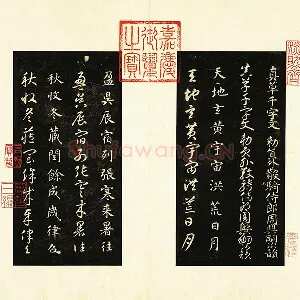 嘉慶御覽之寶
真草千字文 勅員外散騎侍郎周興嗣次韻
真草千字文 勅員外散騎侍郎周興嗣次韻
天地玄黃宇宙洪荒日月
天地玄黃宇宙洪荒日月
盈昃辰宿列張寒來暑往
盈昃辰宿列張寒來暑往
秋收冬藏閏餘成歲律呂
秋收冬藏閏餘成歲律呂